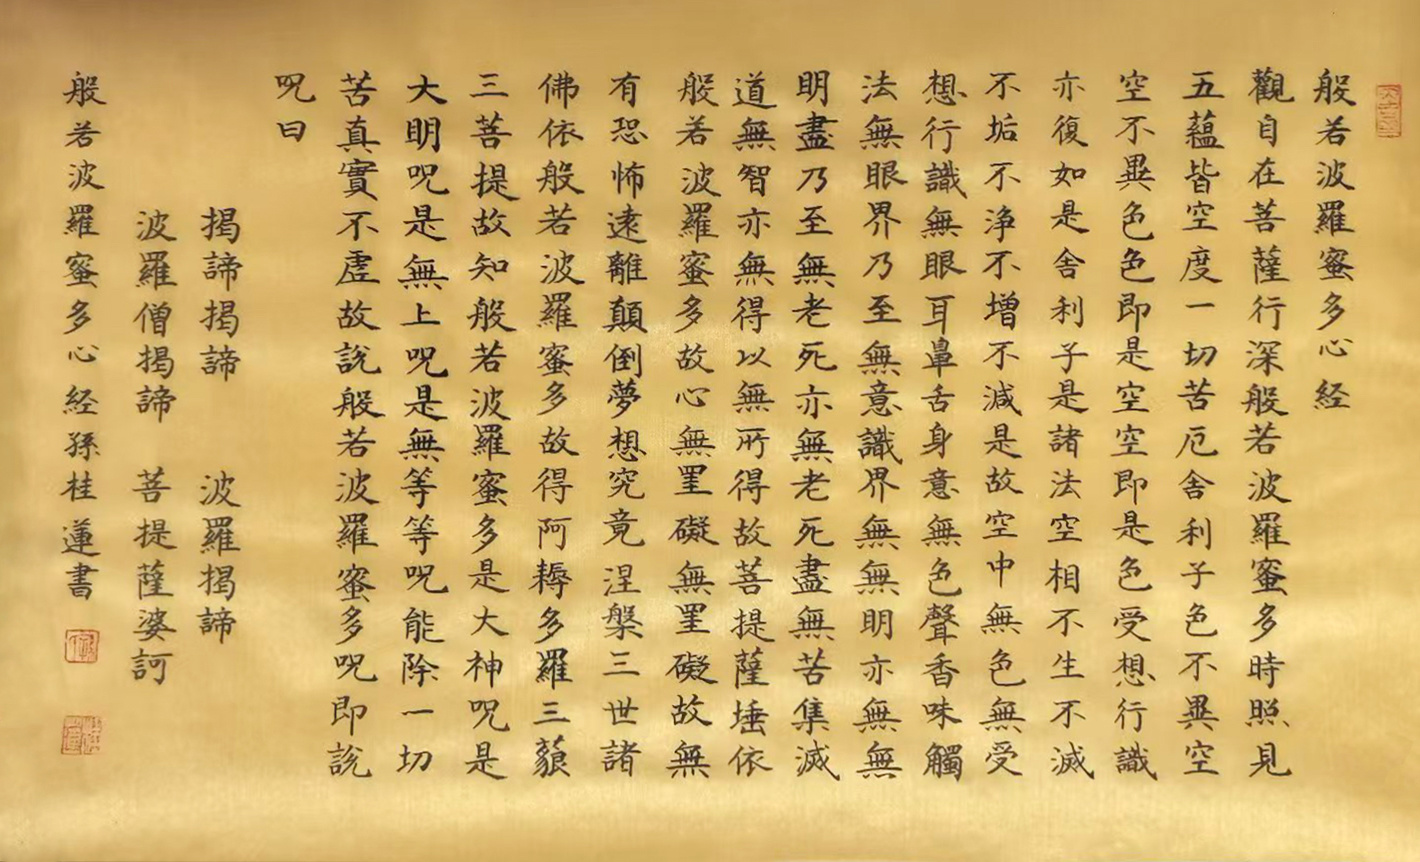 般若波羅蜜多心経
觀自在菩薩行深般若波羅蜜多時照見
五蘊皆空度一切苦厄舍利子色不異空
空不異色色即是空空即是色受想行識
亦復如是舍利子是諸法空相不生不滅
不垢不浄不增不減是故空中無色無受
想行識無眼耳鼻舌身意無色聲香味觸
法無眼界乃至無意識界無無明亦無無
明盡乃至無老死亦無老死盡無苦集滅
道無智亦無得以無所得故菩提薩埵依
般若波羅蜜多故心無罣礙無罣礙故無
有恐怖遠離顛倒夢想究竟涅槃三世諸
佛依般若波羅蜜多故得阿耨多羅三藐
三菩提故知般若波羅蜜多是大神呪是
大明呪是無上呪是無等等呪能除一切
苦真實不虛故説般若波羅蜜多呪即説
呪曰
揭諦揭諦 波羅揭諦
波羅僧揭諦 菩提薩婆訶
般若波羅蜜多心経孫桂蓮書